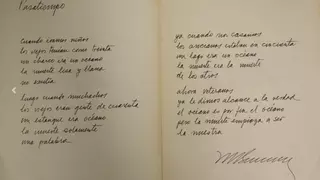 Pasatiempo
Cuando éramos niños
los viejos tenían como treinta
un charco era un océano
la muerte lisa y llana
no existía
luego cuando muchachos
los viejos eran gente de cuarenta
un estanque era océano
la muerte solamente
una palabra
ya cuando nos casamos
los ancianos estaban en cincuenta
un lago era un océano
la muerte era la muerte
de los otros
ahora veteranos
ya le dimos alcance a la verdad
el océano es por fin el océano
pero la muerte empieza a ser
la nuestra